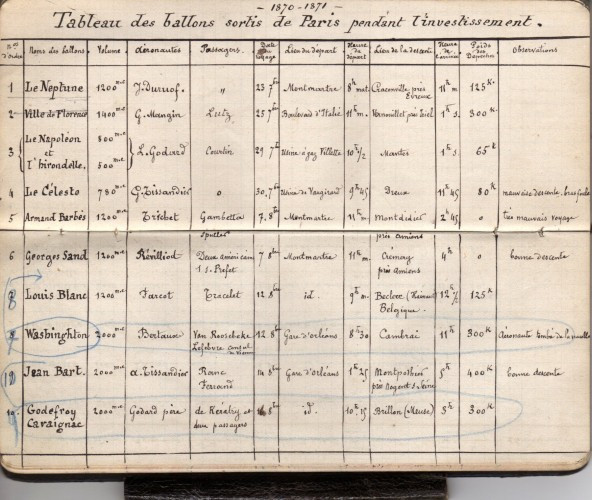 - 1870 - 1871 -
Tableau des ballons sortis de Paris pendant l'investissement.
Nos d'ordre Noms des ballons. Volume aéronautes Passagers. Date du voyage Lieu du départ Heure du départ Lieu de la descente Heure de l'arrivée Poids des Dépêches Observations
1 Le Neptune 1200 mc J. Duruof. " 23 7bre Montmartre 8h mat. Craconville près Evreux 11h m 125 K.
2 Ville de Florence 1400 mc G. Mangin Lutz 25 7bre Boulevard d'Italie 11h m. Vernouillet près 1h s. 300 K.
3 Le Napoléon et l'hirondelle. 800 mc 500 mc L. Godard Courtin 29 7b Usine à gaz Villette 10h 1/2 Mantes 1h s. 65 K
4 Le Céleste 780 mc G. Tissandier o 30, 7b Usine de Vaugirard 9h 45 Dreux 11h 45 80 K mauvaise descente.
5 Armand Barbès 1200 mc Trichet Gambetta Spuller 7. 8b Montmartre 11h m Montdidier près amiens 2h 45 o très mauvais voyage
6 Georges Sand 1200 mc Révilliod Deux américains 1 s. Préfet 7 8b Montmartre 11h m. Crémery près amiens 4h o bonne descente
Louis Blanc 1200 mc Farcot Tracelet 12 8b id. 9h m. Beclerc (Hainaut) Belgique. 12h 1/2 125 K
Washinghton 2000 mc Bertaux Van Roosebeke Lefebvre consul de Vienne 12. 8b Gare d'orléans 8h 30 Cambrai 11h 300 K Aéronaute tombé de la nacelle
Jean Bart. 2000 mc a. Tissandier Ranc Ferrand 14 8b Gare d'Orléans 1h 25 Montpothier près Nogent s. Seine 5h 400 K bonne descente
Godefroy Cavaignac 2000 mc Godard père de Keratry et deux passagers 8b id. 10h 15 Brillon (Meuse) 5h 300 K